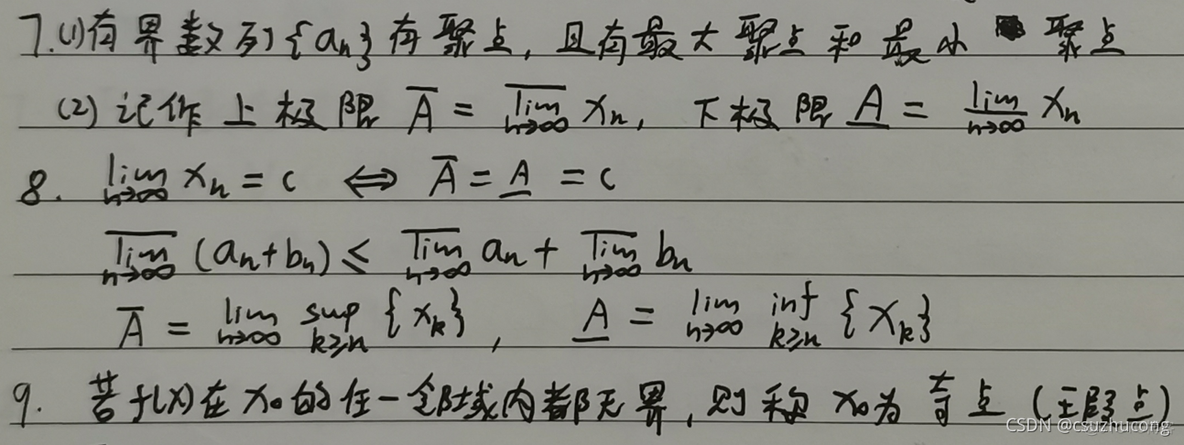 7.(1)有界数列{aₙ}有聚点,且有最大聚点和最小聚点
(2)记作上极限 A̅ = l̅i̅m̅ n→∞ xₙ, 下极限 A̲ = l̲i̲m̲ n→∞ xₙ
8. lim n→∞ xₙ = c ⟺ A̅ = A̲ = c
l̅i̅m̅ n→∞ (aₙ+bₙ) ≤ l̅i̅m̅ n→∞ aₙ + l̅i̅m̅ n→∞ bₙ
A̅ = lim n→∞ sup k≥n {xₖ}, A̲ = lim n→∞ inf k≥n {xₖ}
9. 若f(x)在x₀的任一邻域内都无界,则称x₀为奇点(瑕点)
CSDN @csuzhucong